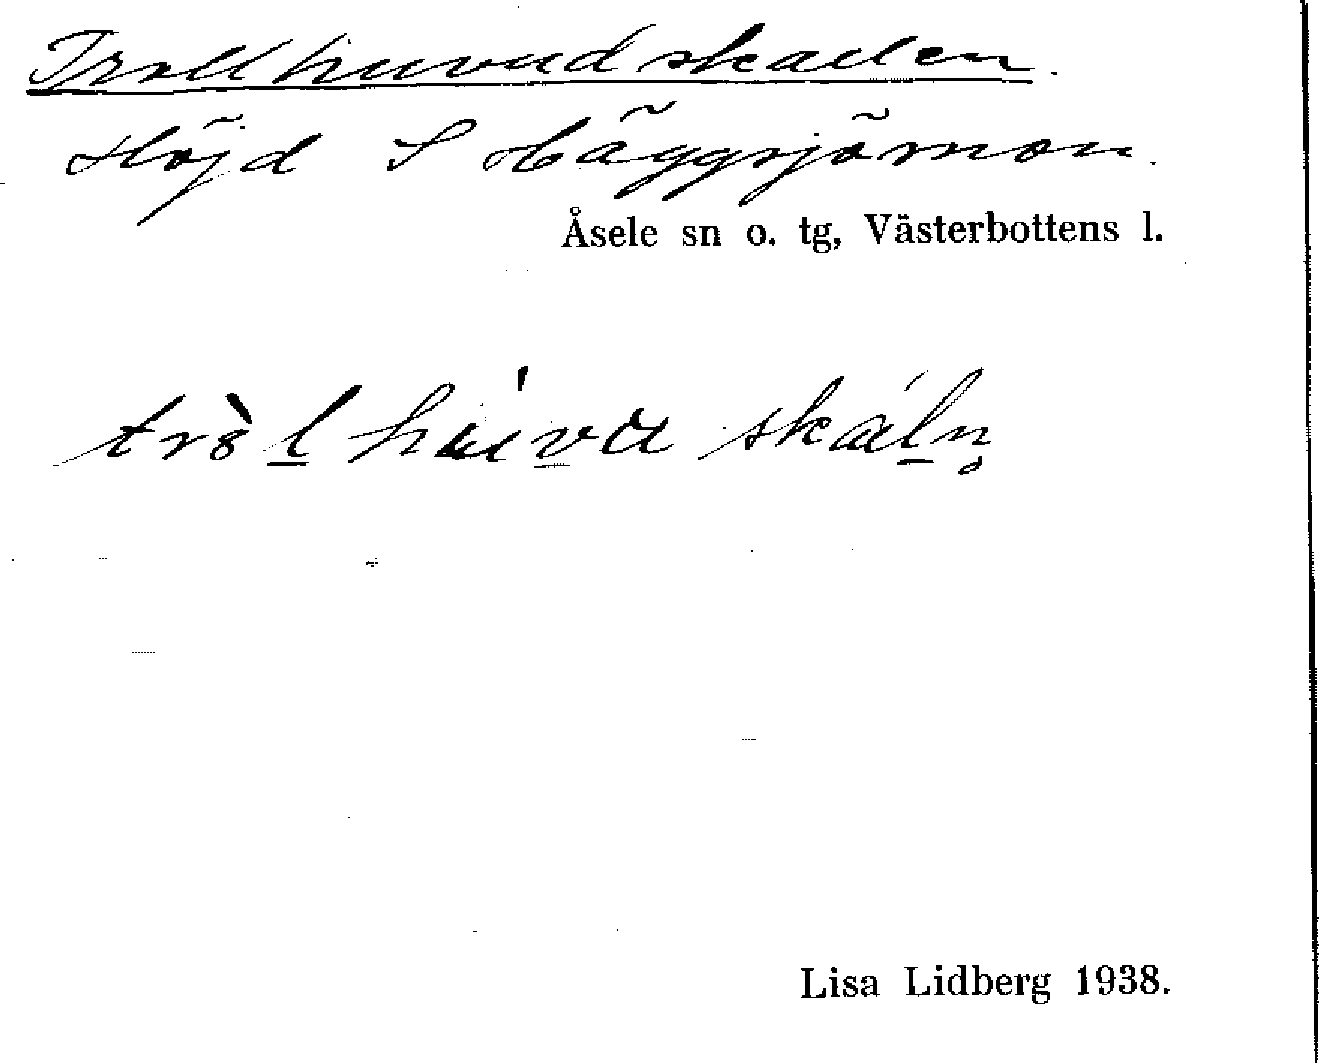 Trollhuvudskallen.
Höjd S Häggsjömon.
Åsele sn o. tg, Västerbottens l.
tròl húvu skáln̥
Lisa Lidberg 1938.